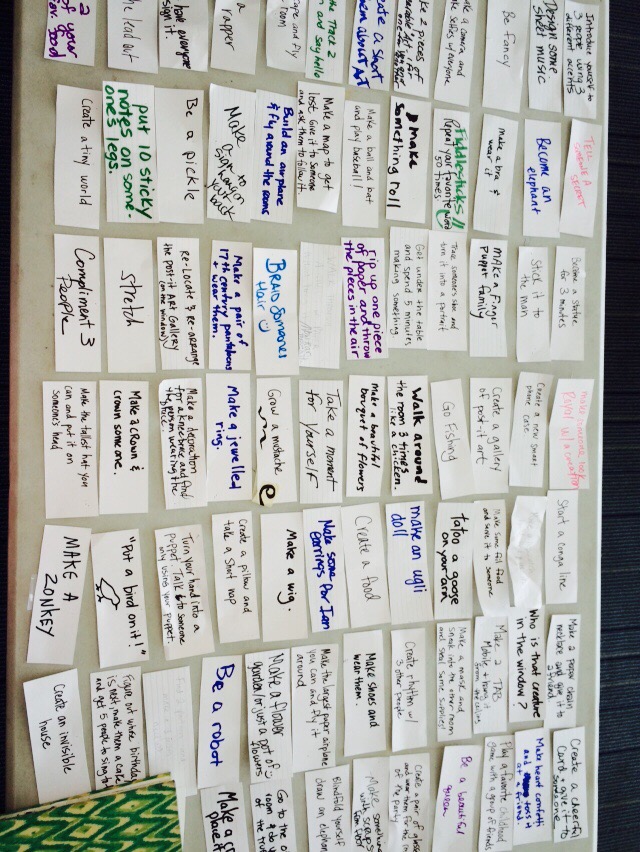 2
of your
food
the loud out
have everyone
sign it.
a
rapper
Tape and fly
room
the Track 2
and say hello
Create a short
about Art
Make 2 pieces of
a camera and
take selfies w/ everyone
Be fancy
Design some
sheet music
Introduce yourself to
3 people using 3
different accents
Create a tiny world
put 10 sticky
notes on some-
one's legs.
Be a pickle
Make a
Build an airplane
& fly around the rooms
Make a map to get
lost. Give it to someone
and ask them to follow it
Make a ball and bat
and play baseball!
Make
something roll
Fiddle-sticks!!
Repeat your favorite word
50 times
make a bra &
wear it
Become an
elephant
TELL
SOMEONE A
SECRET
Compliment 3
People
Stretch
Re-Locate & re-arrange
the post-it ART Gallery
(on the window)
Make a pair of
17th century pantaloons
& wear them.
BRAID Someones
Hair
rip up one piece
of paper and throw
the pieces in the air
Get under the table
and spend 5 minutes
making something
Trace someone's shoe and
turn it into a portrait
MAKE A Finger
Puppet family
Stick it to
the man
Become a statue
for 3 minutes
Make the tallest hat you
can and put it on
someone's head
Make a crown &
crown someone.
Make a decoration
for a knee-brace and find
the person wearing the
brace.
Make a jewelled
ring.
Grow a mustache
Take a moment
for yourself
Make a beautiful
bouquet of flowers
Walk around
the room 3 times
like a chicken.
Go Fishing
Create a gallery
of post-it art
Create a new smart
phone case
make someone look
w/ a creation
MAKE A
ZONKEY
"Put a bird on it!"
Turn your hand into a
puppet. Talk to someone
only using your puppet.
Create a pillow and
take a short nap
Make a wig.
Make some
earrings for Ian
Create a food
make an ugli
doll
tatoo a goose
on your arm
Make some foil food
and serve it to someone
Start a conga line
Create an invisible
house
Figure out whose birthday
is next, make them a cake
and get 5 people to sing to
Be a robot
Make a flower
garden or just a pot of
flowers
Make the largest paper airplane
you can and fly it
around
Make shoes and
wear them
Create rhythm w/
3 other people
Make a mask and
sneak into the other room
and steal some supplies!
Make 2 TAB
Mobile
Who is that creature
in the window?
Make a paper chain
necklace and give it to
a friend
Make a
place it
Go to the
room & do
of the
Blindfold yourself
draw an elephant
Make something
with scraps
from floor
Create a pair of glasses
and wear them for the
of the party
Be a beautiful
queen
Play a favorite childhood
game with a group of friends
Make heart confetti
and toss it
at a friend.
Create a cheerful
card & give it to
someone